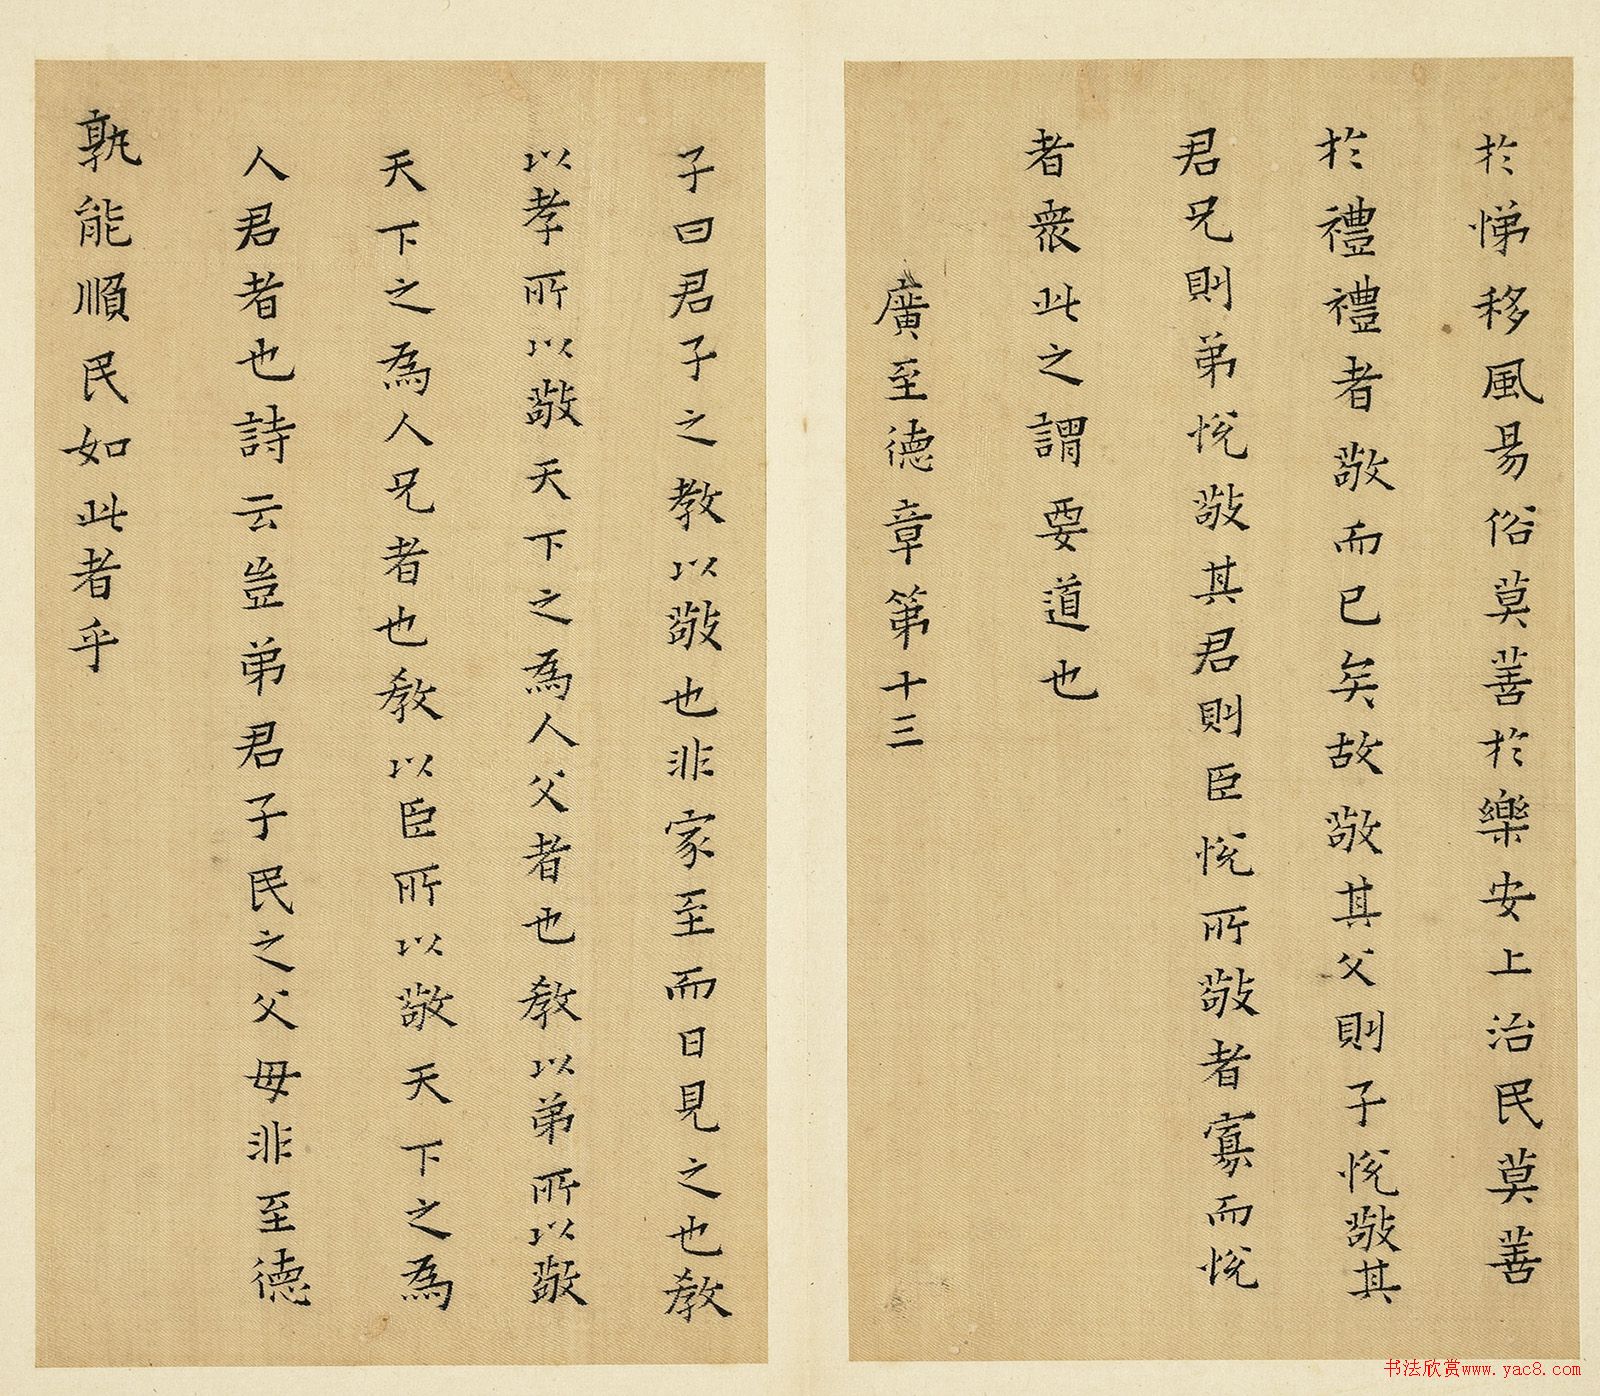 於悌移風易俗莫善於樂安上治民莫善
於禮禮者敬而已矣故敬其父則子悅敬其
君兄則弟悅敬其君則臣悅所敬者寡而悅
者衆此之謂要道也
廣至德章第十三
子曰君子之教以敬也非家至而日見之也教
以孝所以敬天下之為人父者也教以弟所以敬
天下之為人兄者也教以臣所以敬天下之為
人君者也詩云豈弟君子民之父母非至德
孰能順民如此者乎
书法欣赏www.yac8.com